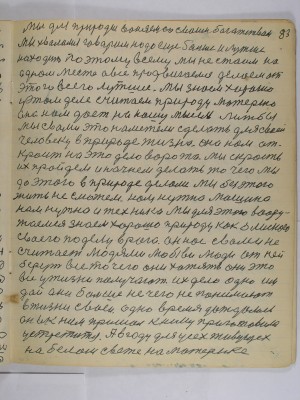 Мы для природы гоняемся своим богатством 93
мы хвалимся говорим надо еще больше и лутше
находить Поэтому всему мы не стаим на
одном месте а все продвигаемся делаем от
этого всего лутшее. Мы знаем хорошо
у этом деле считаем природу матерею
она нам дает на нашу мысль Лишь бы
мы с вами это наметели сделать для своей
человеку в природе жизни, она нам от-
кроит на это дело ворота. Мы скрозь
их пройдем и начнем делать то чего мы
до этого в природе делали Мы без этого
жить не сможем, нам нужно машина
нам нужно и техника Мы для этого воору-
жаемся знаем хорошо природу как близкого
своего по делу врага. она нас своими не
считает Людями мол бы люди от ней
берут все то чего они хотять они это
все у жизни получают их дело одно им
дай они больше не чего не понимают
в жизни своей одно время дождались
он их нам пришол к нему приготовили
устретить. А в году для усех живущих
на белом свете на матерька